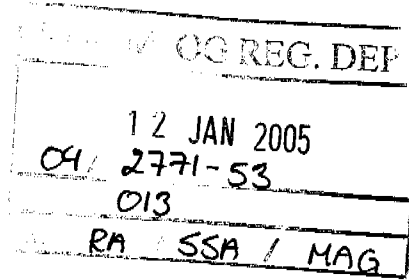 OG REG. DEP
12 JAN 2005
04/ 2771-53
013
RA / SSA / MAG